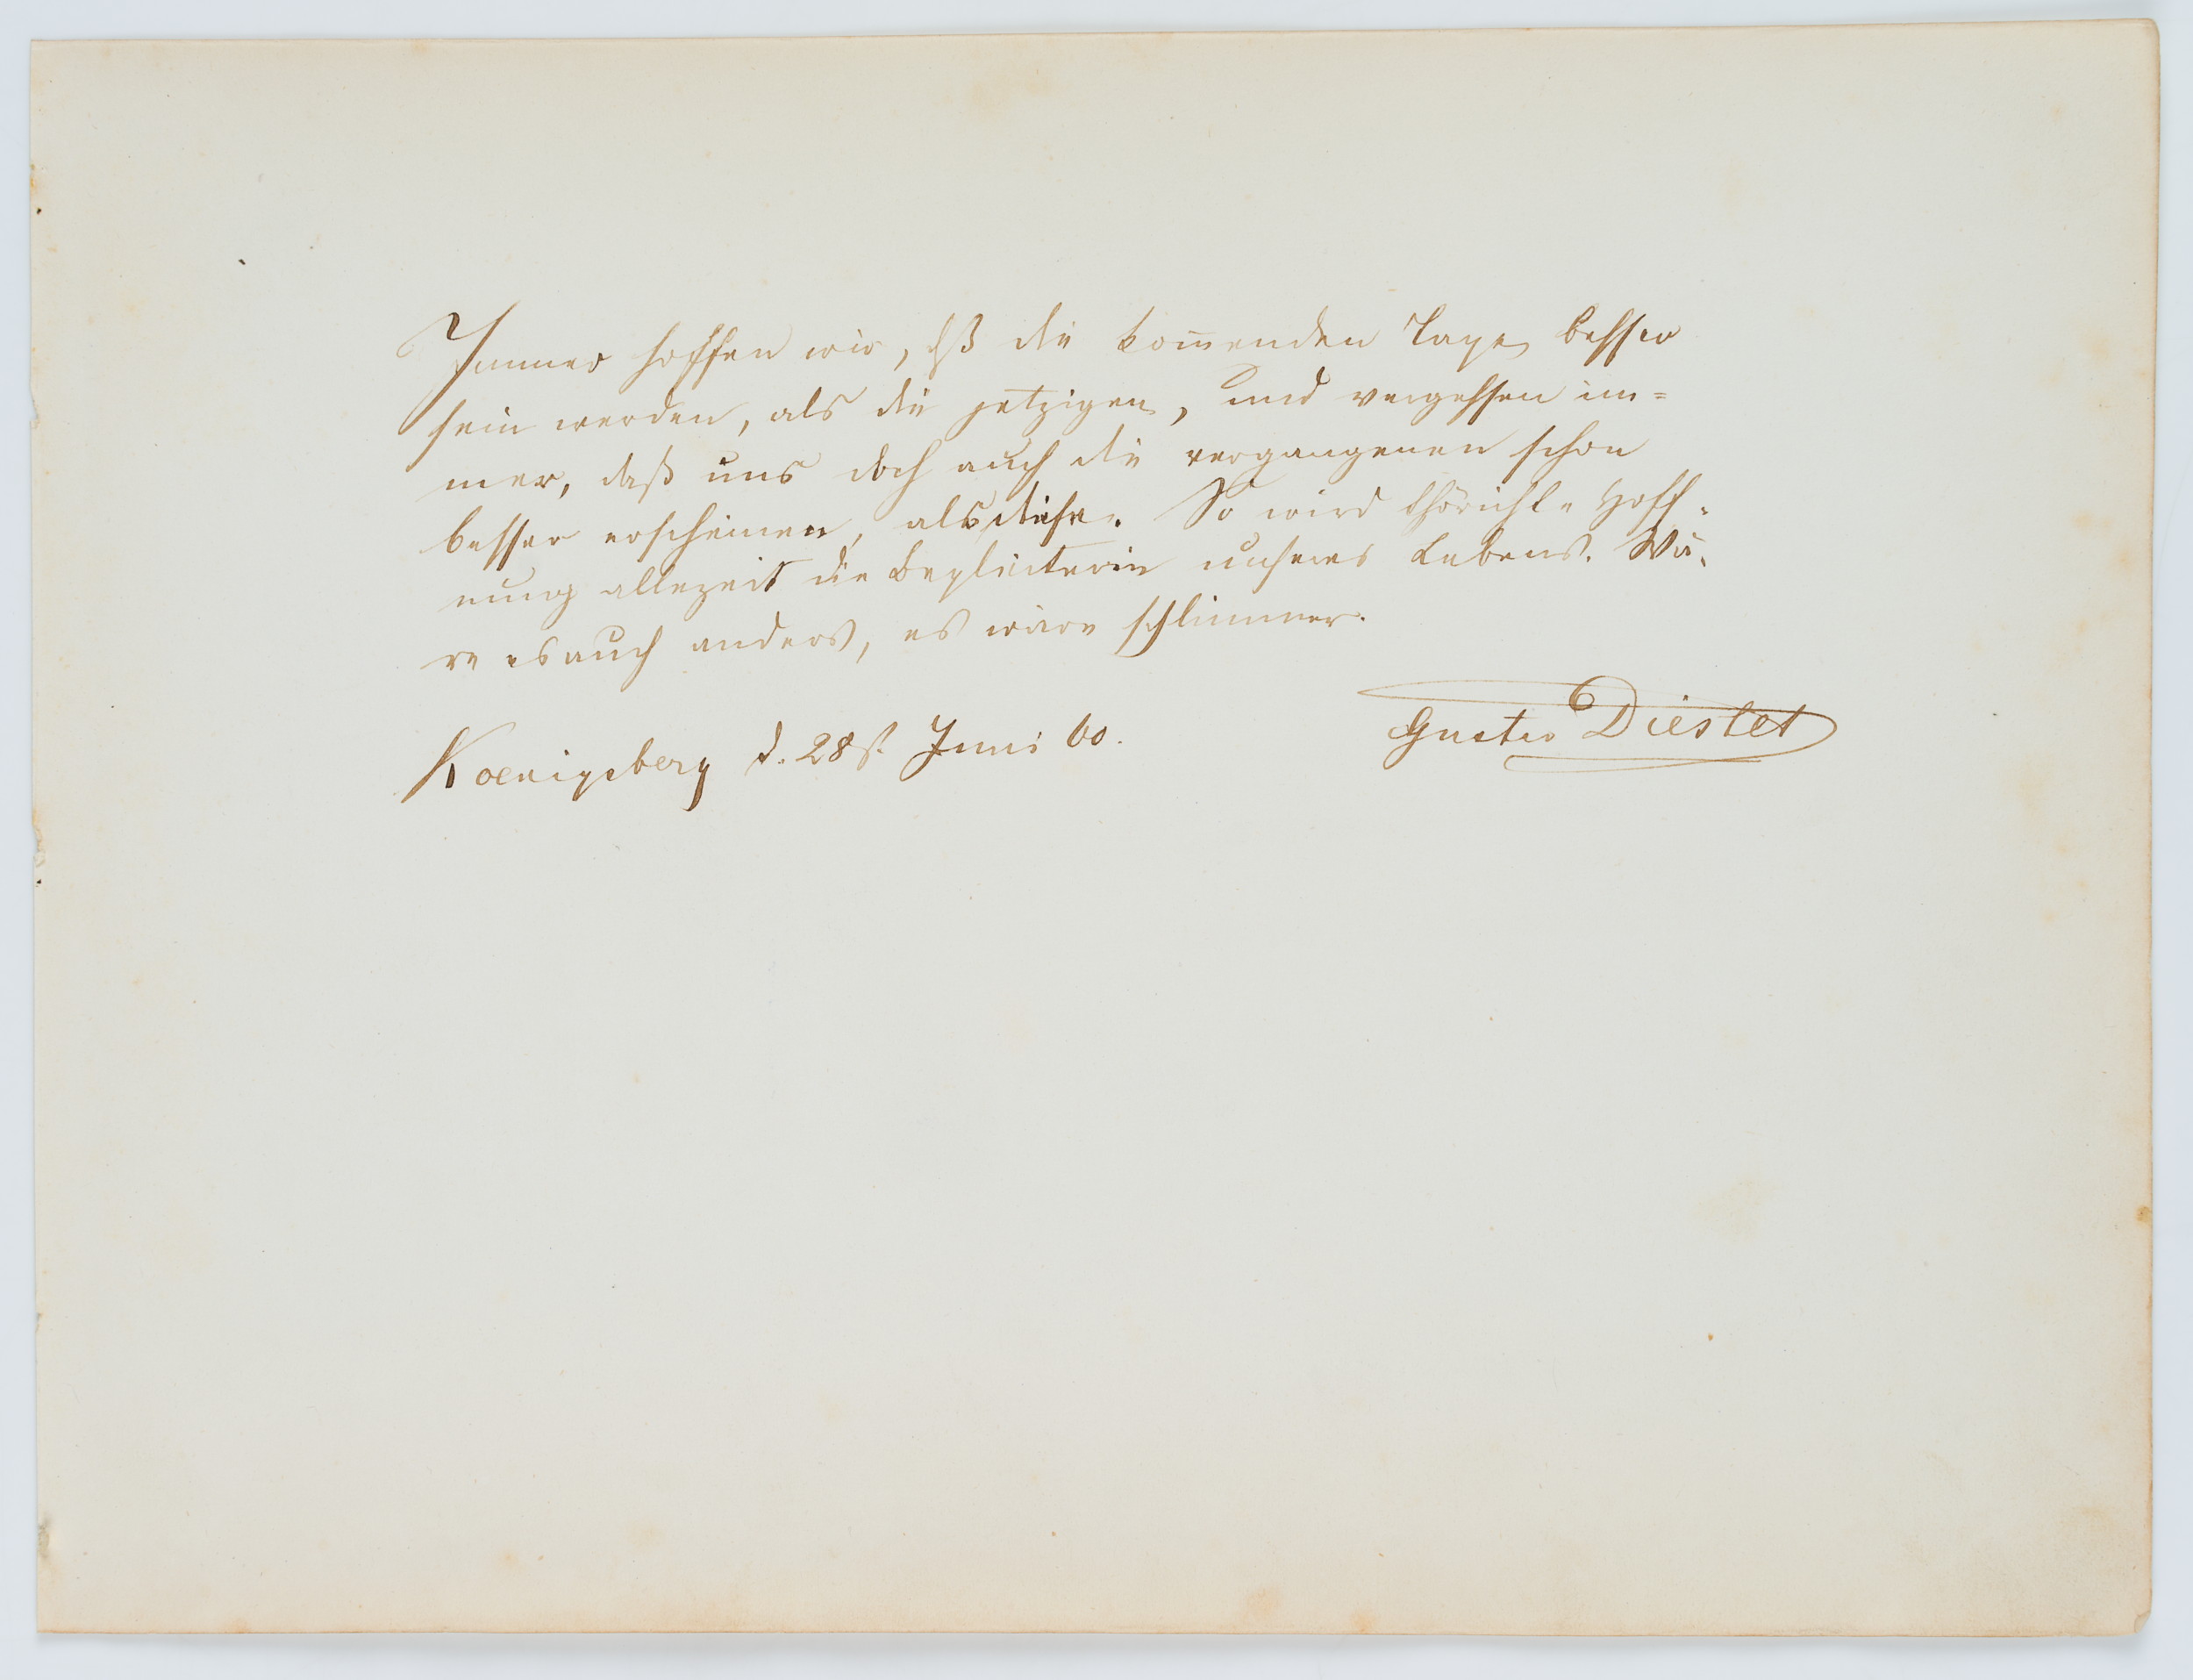 Immer hoffen wir, dß die kom̅enden Tage besser
sein werden, als die jetzigen, und vergessen im=
mer, daß uns doch auch die vergangenen schon
besser erscheinen, als diese. So wird thörichte Hoff-
nung allezeit die Begleiterin unseres Lebens. Wä-
re es auch anders, es wäre schlimmer.
Koenigsberg d. 28st. Juni 60.
Gustav Diestel